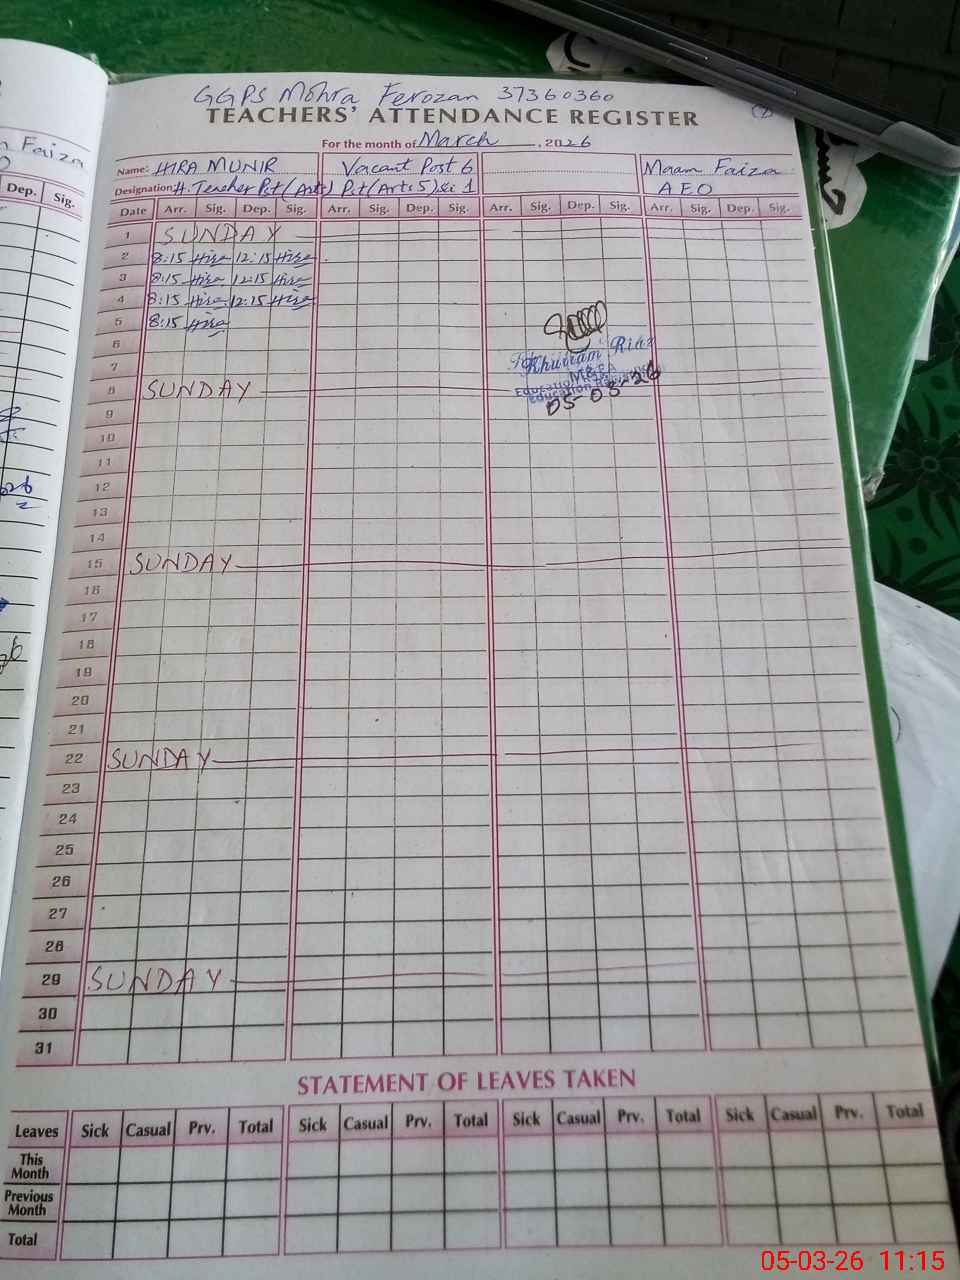 GGPS Mohra Ferozan 37360360
TEACHERS' ATTENDANCE REGISTER
For the month of March, 2026
Name: HIRA MUNIR Vacant Post 6 Maam Faiza
Designation: H. Teacher Pst (Arts) Pst (Arts 5) Sci 1 AEO
Date Arr. Sig. Dep. Sig. Arr. Sig. Dep. Sig. Arr. Sig. Dep. Sig. Arr. Sig. Dep. Sig.
1 SUNDAY
2 8:15 Hira 12:15 Hira
3 8:15 Hira 12:15 Hira
4 8:15 Hira 12:15 Hira
5 8:15 Hira
6
7
Khurram Riaz
8 SUNDAY
05-03-26
9
10
11
12
13
14
15 SUNDAY
16
17
18
19
20
21
22 SUNDAY
23
24
25
26
27
28
29 SUNDAY
30
31
STATEMENT OF LEAVES TAKEN
Leaves Sick Casual Prv. Total Sick Casual Prv. Total Sick Casual Prv. Total Sick Casual Prv. Total
This Month
Previous Month
Total
Faiza
Dep. Sig.
05-03-26 11:15